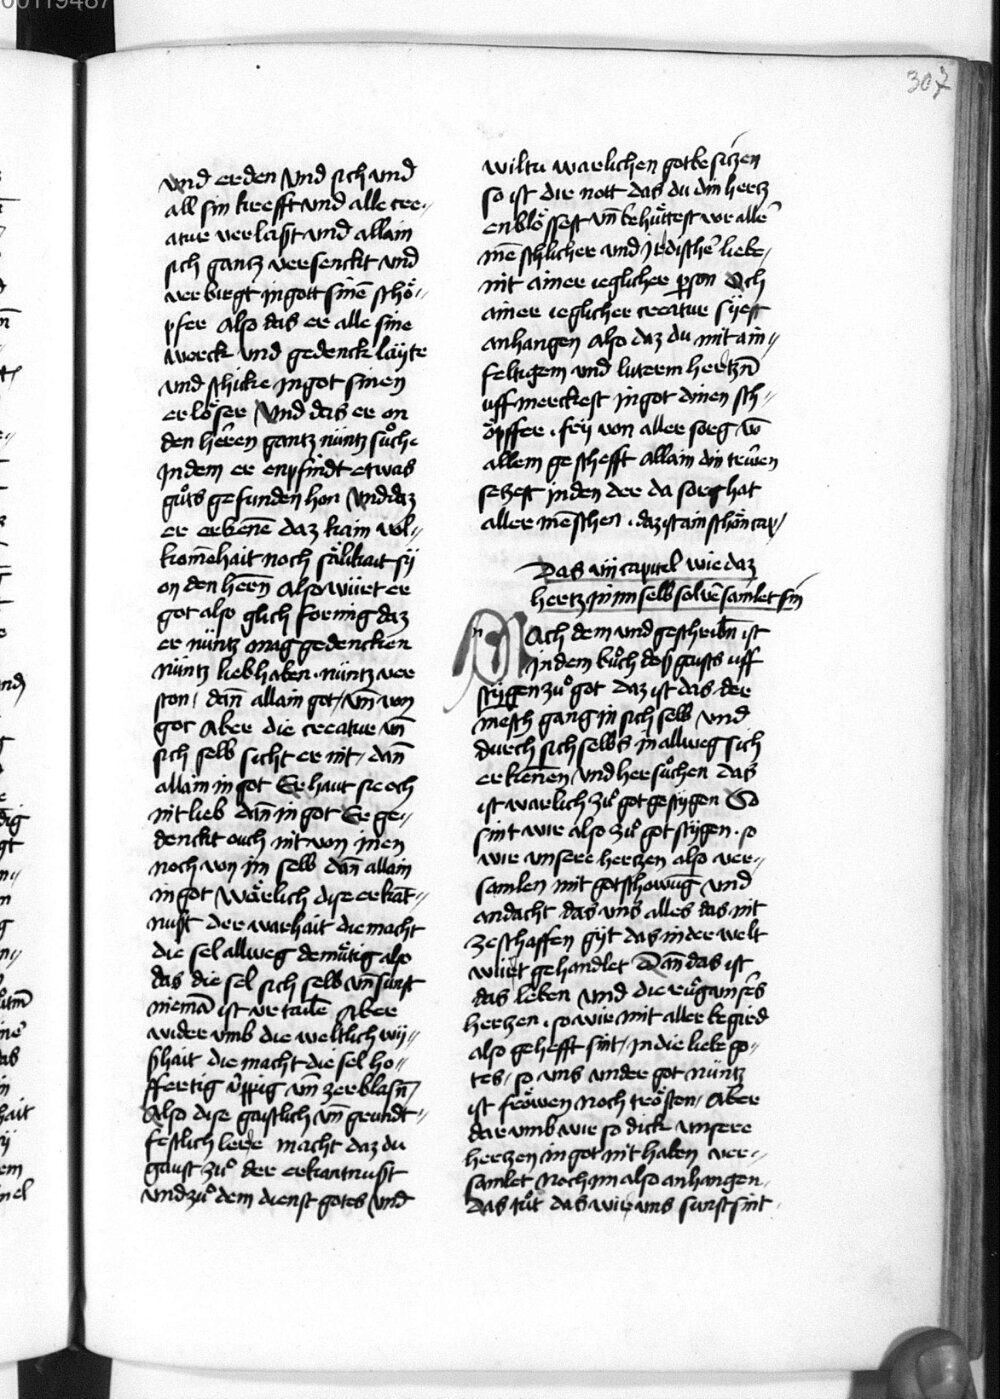 307
vnd erden vnd sich vnd
all sin krefft vnd alle cre-
atur verlaißt vnd allain
sich gantz versenckt vnd
verbirgt in gott sinē schö-
pfer also das er alle sine
werck vnd gedenck laÿte
vnd schicke in got sinen
erlöser vnd das er on
den herren gantz nüntz sůche
in dem er enpfindt etwas
gůts gefunden hon vnd daz
er erkenē daz kain vol-
komēhait noch sälikait sÿ
on den herrn also wirt er
got also glich formig daz
er nüntz mag gedencken
nüntz lieb haben nüntz ver
ston dañ allain got vñ von
got Aber die creatur vñ
sich selb sicht er nit dañ
allain in got Er haut sie och
nit lieb dañ in got Er ge-
denckt ouch nit von inen
noch von im selb dañ allain
in got Wärlich dise erkāt-
nust der warhait die macht
die sel allweg demütig also
das die sel sich selb vñ sunst
niemā ist vrtailē Aber
widerumb die weltlich wÿ-
ßhait die macht die sel ho-
ffertig üppig vñ zerblasñ
Also dise gaistlich vñ grundt-
festlich lere macht daz du
gaust zů der erkantnust
vnd zů dem dienst gotes vnd
wiltu warlichen got besitzen
so ist die nott das du din hertz
enblössest vñ behüttest vor allē
mēschlicher vnd irdischer liebe
nit ainer ieglicher pson Och
ainer ieglicher creatur sÿest
anhangen also daz du mit ain-
feltigem vnd luterm hertzñ
uff merckest in got dinen sch-
öpffer . frÿ von aller sorg vō
allem geschefft allain din trüwen
setzest in den der da sorg hat
aller mēschen . daz ist ain schön cap
Das viij capitel wie daz
hertz in im selb sol vsamlet sin
Nach dem vnd geschribñ ist
in dem bůch deß gaists uff
stÿgen zů got daz ist das der
mēsch gang in sich selb vnd
durch sich selbs in allweg sich
erkennen vnd hersůchen das
ist warlich zů got gestÿgen So
sint wir also zů got stÿgen . so
wir vnsere hertzen also ver-
samlen mit gotschowūg vnd
andacht das vns alles das nit
ze schaffen gÿt das in der welt
wurt gehandlet Dañ das ist
das leben vnd die růg vnsers
hertzen . so wir mit aller begird
also gehefft sint in die liebe go-
tes so vns vnder got nüntz
ist fröwen noch trösten Aber
darumb wir so dick vnsere
hertzen in got nit haben ver-
samlet noch im also anhangen
das tůt das wir vns sunst sint